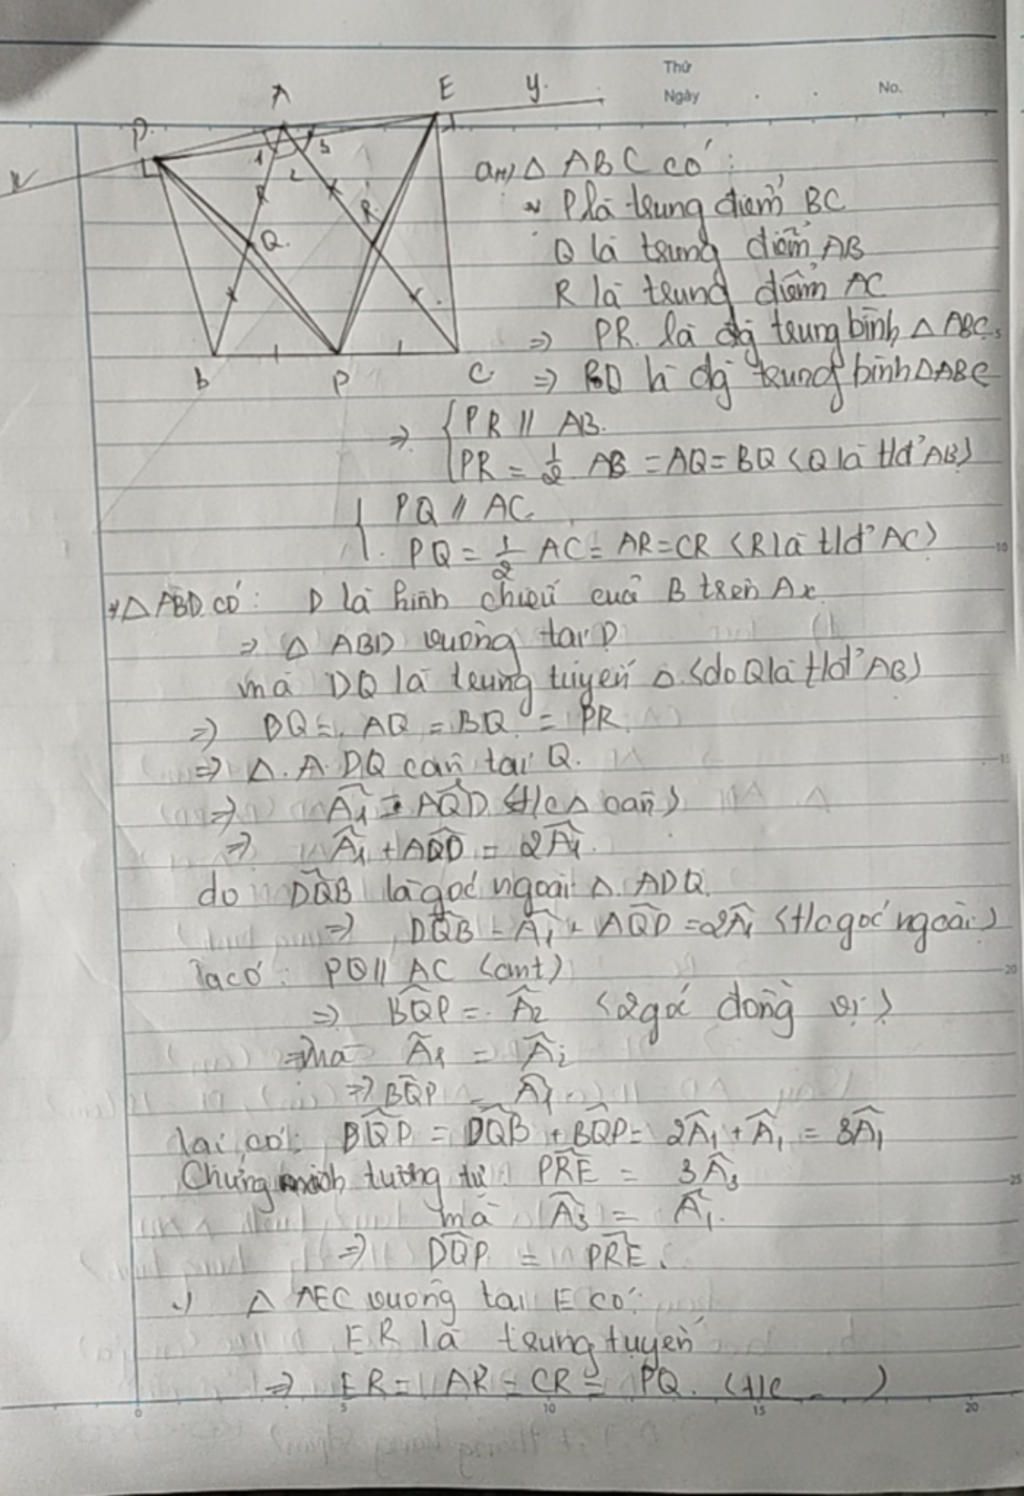 Thứ
Ngày
No.
A
E
y
D
x
1
2
3
Q
R
B
P
C
am) △ ABC có:
P là trung điểm BC
Q là trung điểm AB
R là trung điểm AC
⇒ PR là đg trung bình △ ABC
⇒ PQ là đg trung bình △ABC
⇒ { PR // AB.
PR = 1/2 AB = AQ = BQ (Q là tđ AB)
{ PQ // AC
PQ = 1/2 AC = AR = CR (R là tđ AC)
* △ ABD có: D là hình chiếu của B trên Ax
⇒ △ ABD vuông tại D
mà DQ là trung tuyến △ (do Q là tđ AB)
⇒ DQ = AQ = BQ = PR
⇒ △ ADQ cân tại Q.
⇒ Â1 = AQ̂D (t/c △ cân)
⇒ Â1 + AQ̂D = 2Â1.
do DQ̂B là góc ngoài △ ADQ.
⇒ DQ̂B = Â1 + AQ̂D = 2Â1 (t/c góc ngoài)
Ta có: PQ // AC (cmt)
⇒ BQ̂P = Â2 (2 góc đồng vị)
mà Â1 = Â2
⇒ BQ̂P = Â1
lại có: BQ̂P = DQ̂B + BQ̂P = 2Â1 + Â1 = 3Â1
Chứng minh tương tự: PR̂E = 3Â3
mà Â3 = Â1.
⇒ DQ̂P = PR̂E.
△ AEC vuông tại E có:
ER là trung tuyến
⇒ ER = AR = CR = PQ. (t/c )
0
5
10
15
20
10
15
20
25